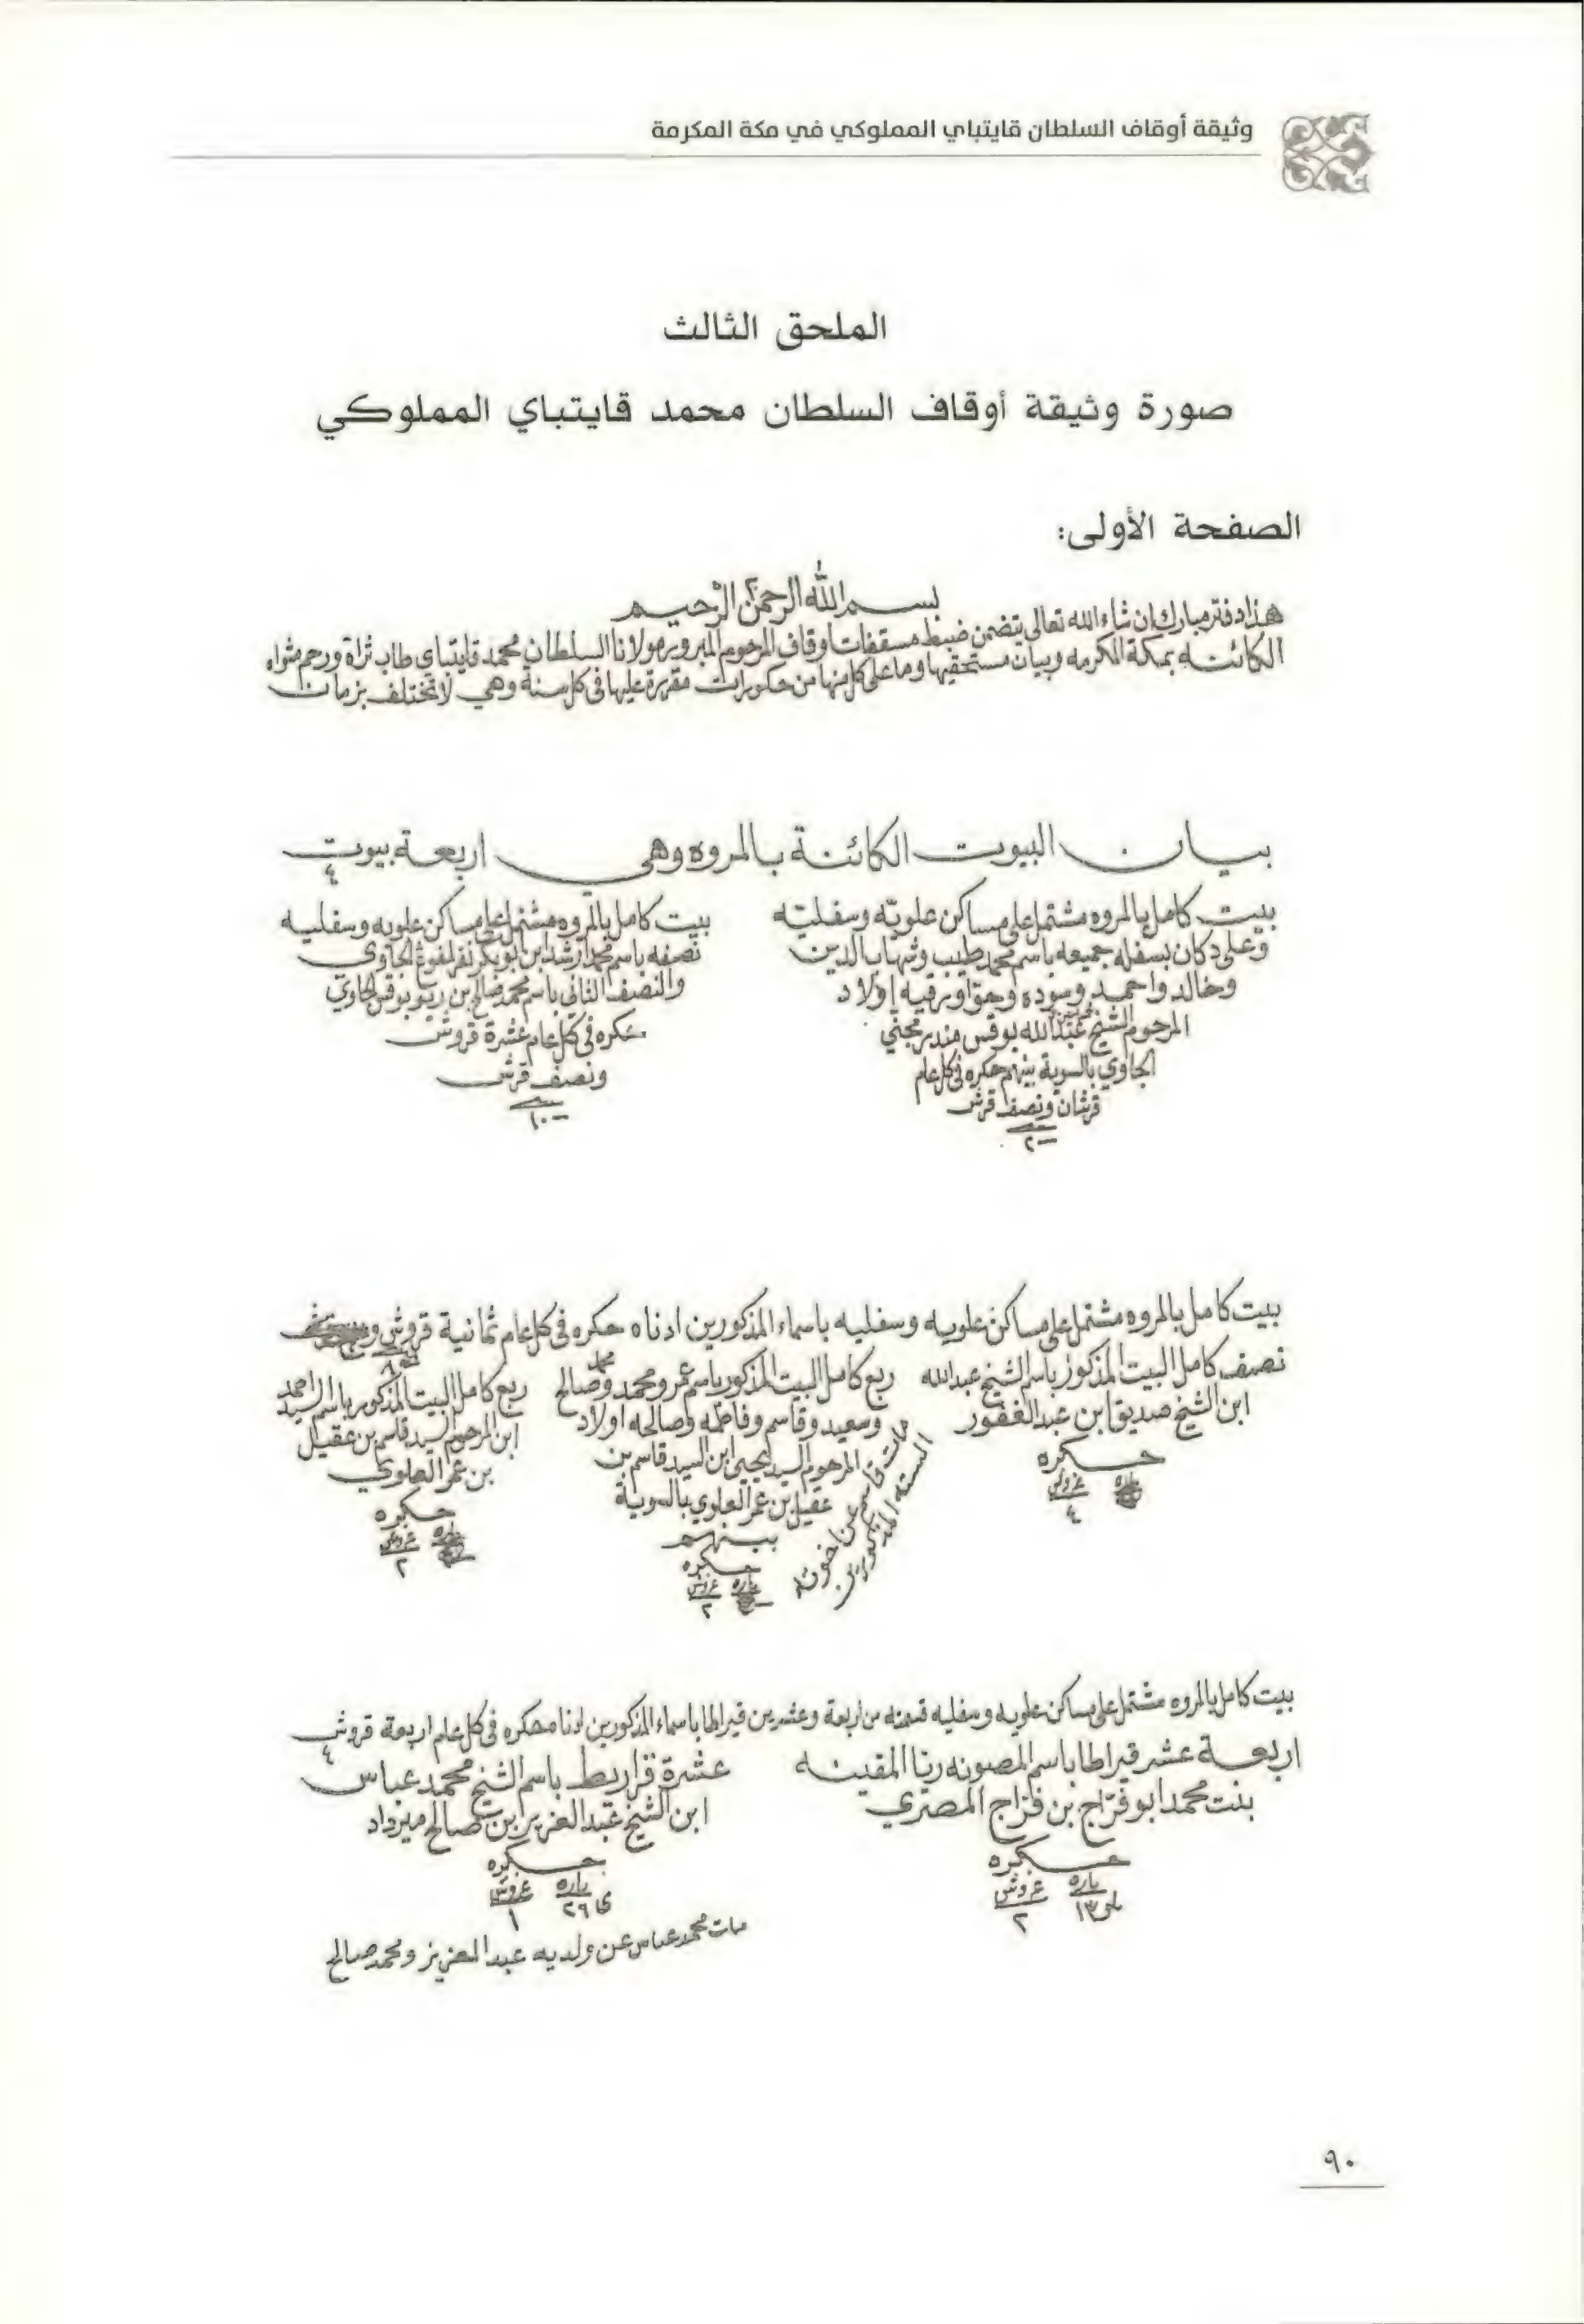 وثيقة أوقاف السلطان قايتباي المملوكي في مكة المكرمة
الملحق الثالث
صورة وثيقة أوقاف السلطان محمد قايتباي المملوكي
الصفحة الأولى:
بسم الله الرحمن الرحيم
هذا دفتر مبارك ان شاء الله تعالى يتضمن ضبط مسقفات اوقاف المرحوم المبرور مولانا السلطان محمد قايتباي طاب ثراة ورحم مثواه
الكائنه بمكة المكرمه وبيان مستحقيها وما على كل منها من حكورات مقررة عليها في كل سنة وهي لا تختلف بزمان
بيان البيوت الكائنة بالمروه وهي اربعة بيوت
٤
بيت كامل بالمروه مشتمل على مساكن علويّه وسفليّه
وعلى دكان بسفله جميعه باسم محمد طيب وشهاب الدين
وخالد واحمد وسوده وحوّا ورقيه اولاد
المرحوم الشيخ عبد الله بوقس
الجاوي بالسوية بينهم حكره في كل عام
قرشان ونصف قرش
٢
بيت كامل بالمروه مشتمل على مساكن علويه وسفليه
نصفه باسم محمد ارشد ابن ابو بكر الجاوي
والنصف الثاني باسم محمد صالح بن بوقس الجاوي
حكره في كل عام عشرة قروش
ونصف قرش
١٠
بيت كامل بالمروه مشتمل على مساكن علويه وسفليه باسماء المذكورين ادناه حكره في كل عام ثمانية قروش
٨
نصف كامل البيت المذكور باسم الشيخ عبد الله
ابن الشيخ صديق ابن عبد الغفور
حكره
باره غروش
٤
ربع كامل البيت المذكور باسم عمر ومحمد وصالح
وسعيد وقاسم وفاطمه وصالحه اولاد
المرحوم السيد يحيى ابن السيد قاسم بن
عقيل بن عمر العلوي بالسوية
بينهم
حكره
باره غروش
٢
مات قاسم عن اخوته
السته المذكورين
ربع كامل البيت المذكور باسم السيد احمد
ابن المرحوم السيد قاسم بن عقيل
بن عمر العلوي
حكره
باره غروش
٢
بيت كامل بالمروه مشتمل على مساكن علويه وسفليه قسمته من اربعة وعشرين قيراطا باسماء المذكورين ادناه حكره في كل عام اربعة قروش
٤
اربعة عشر قيراطا باسم المصونه رنا المقينه
بنت محمد ابو فرّاج بن فرّاج المصري
حكره
باره غروش
١٣ ٢
عشرة قراريط باسم الشيخ محمد عباس
ابن الشيخ عبد العزيز ابن صالح ميرداد
حكره
باره غروش
٢٩ ١
مات محمد عباس عن ولديه عبد العزيز ومحمد صالح
٩٠